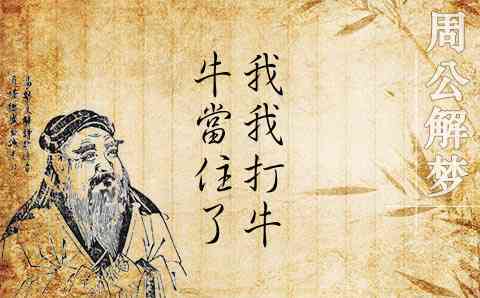 周公解梦
我我打牛
牛當住了